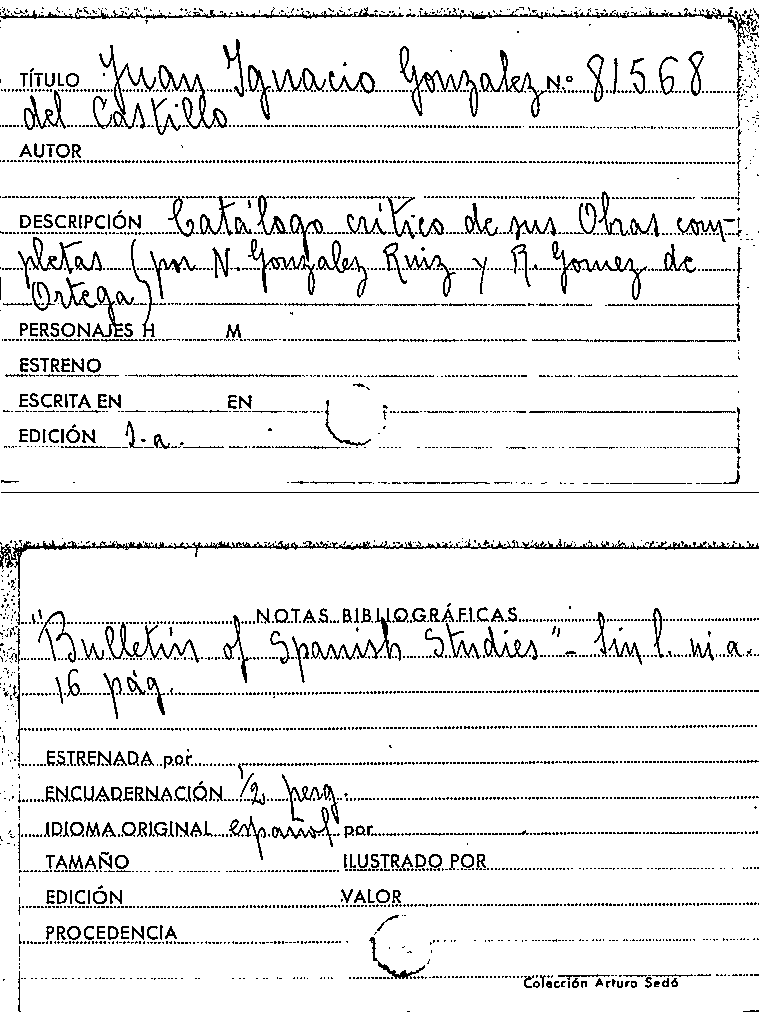 TÍTULO Juan Ignacio Gonzalez N.º 81568
del Castillo
AUTOR
DESCRIPCIÓN Catálogo crítico de sus Obras com-
pletas (por N. Gonzalez Ruiz y R. Gomez de
Ortega)
PERSONAJES H M
ESTRENO
ESCRITA EN EN
EDICIÓN 1.a.
NOTAS BIBLIOGRÁFICAS
"Bulletin of Spanish Studies" - Sin l. ni a.
16 pág.
ESTRENADA por
ENCUADERNACIÓN 1/2 perg.
IDIOMA ORIGINAL español por
TAMAÑO ILUSTRADO POR
EDICIÓN VALOR
PROCEDENCIA
Colección Arturo Sedó